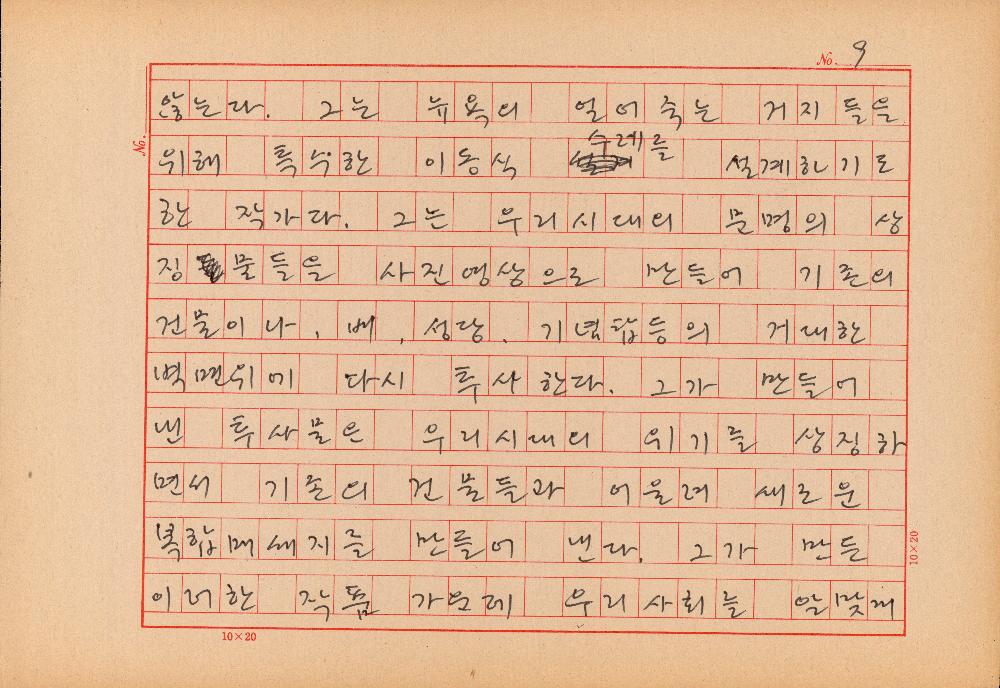 No. 9
No.
않는다. 그는 뉴욕의 얼어죽는 거지들을
수레를
위해 특수한 이동식 설계하기로
한 작가다. 그는 우리시대의 문명의 상
징물들을 사진영상으로 만들어 기존의
건물이나, 벼, 성당, 기념탑등의 거대한
벽면위에 다시 투사한다. 그가 만들어
낸 투사물은 우리시대의 위기를 상징하
면서 기존의 건물들과 어울려 새로운
복합메세지를 만들어 낸다. 그가 만든
이러한 작품 가운데 우리사회를 알맞게
10×20
10×20